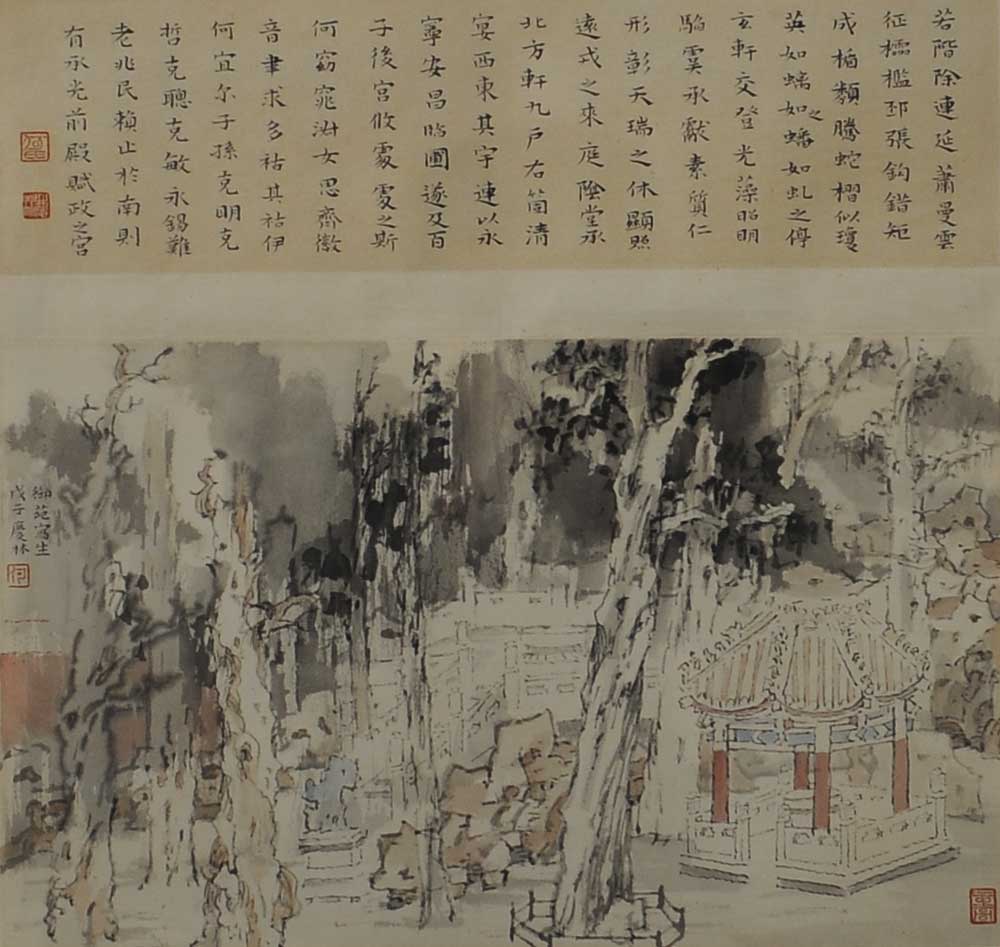 若階除連延蕭曼雲
征櫺檻邳張鈎錯矩
成楯類騰蛇槢似瓊
英如螭如之蟠如虬之停
玄軒交登光藻昭明
騶虞承獻素質仁
形彰天瑞之休顯照
遠戎之來庭陰堂承
北方軒九戶右箇清
宴西東其宇連以永
寧安昌臨圃遂及百
子後宮攸處處之斯
何窈窕淑女思齊徽
音聿求多祜其祜伊
何宜尔子孫克明克
哲克聰克敏永錫難
老兆民賴止於南則
有承光前殿賦政之宮
御苑寫生
戊子慶林